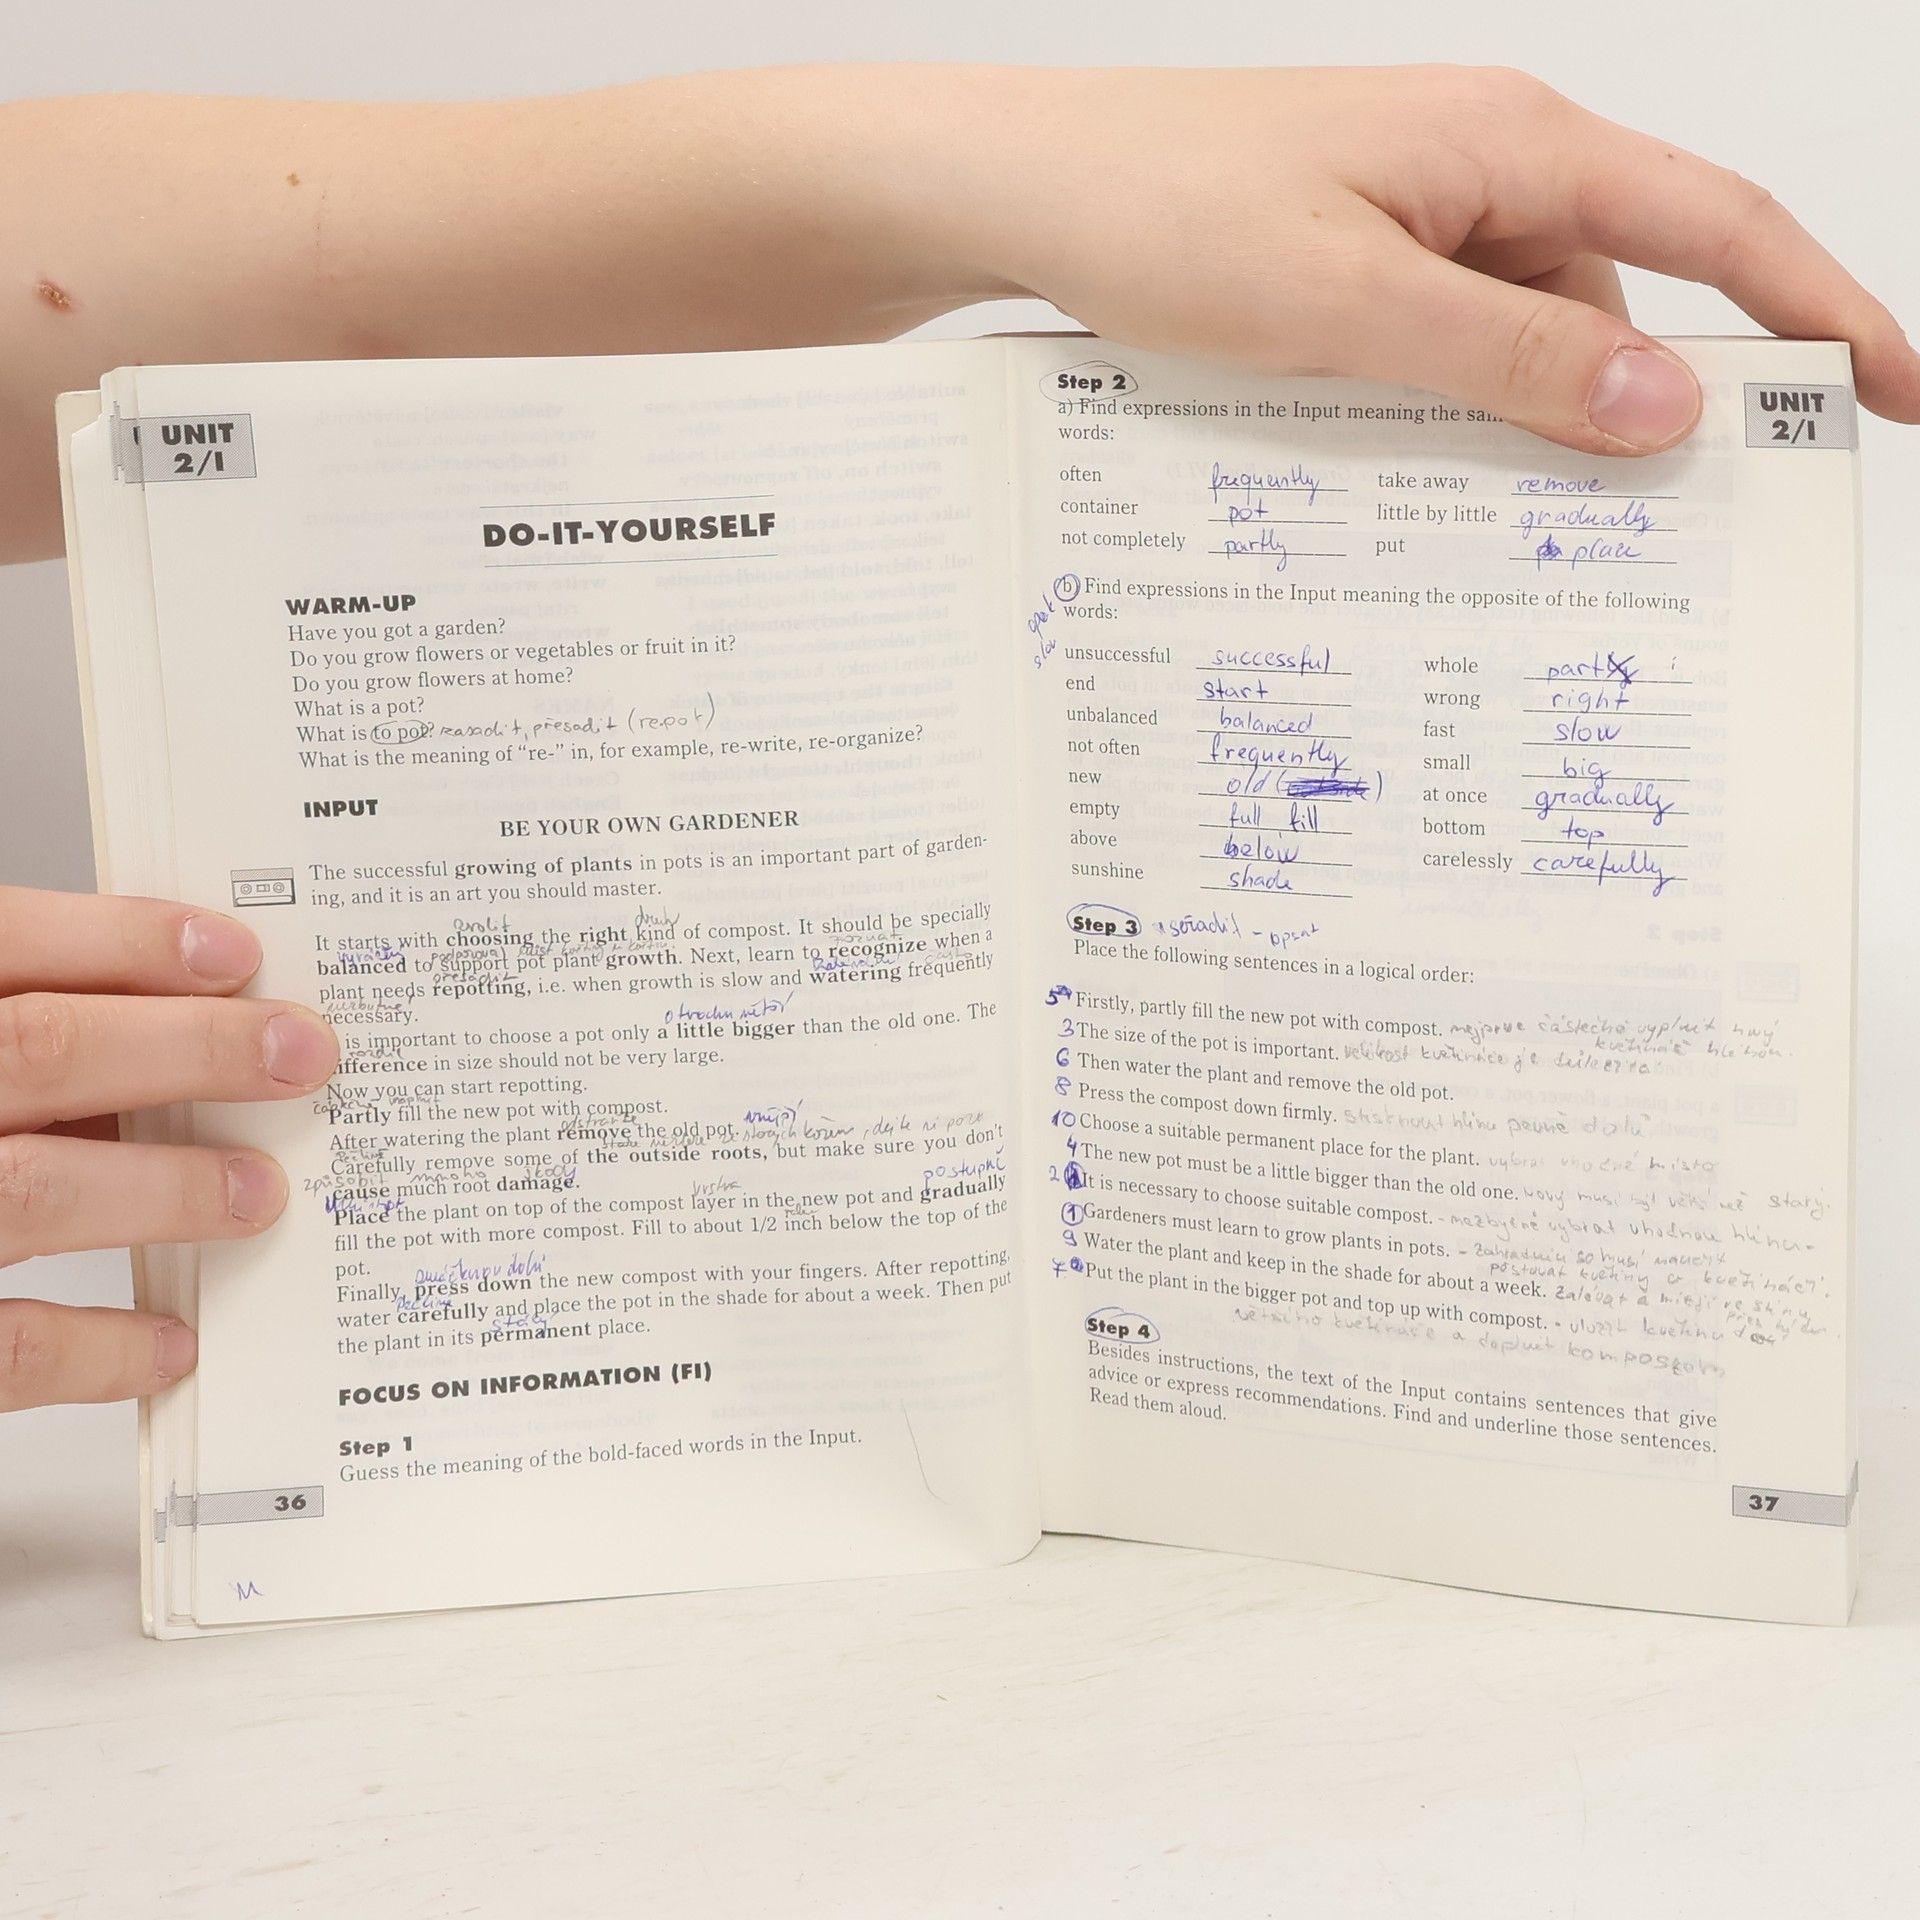 UNIT
2/I
DO-IT-YOURSELF
WARM-UP
Have you got a garden?
Do you grow flowers or vegetables or fruit in it?
Do you grow flowers at home?
What is a pot?
What is to pot? zasadit, přesadit (repot)
What is the meaning of “re-” in, for example, re-write, re-organize?
INPUT
BE YOUR OWN GARDENER
The successful growing of plants in pots is an important part of garden-
ing, and it is an art you should master.
zvolit druh
It starts with choosing the right kind of compost. It should be specially
balanced to support pot plant growth. Next, learn to recognize when a
přesadit
plant needs repotting, i.e. when growth is slow and watering frequently
necessary.
is important to choose a pot only a little bigger than the old one. The
rozdíl
ifference in size should not be very large.
Now you can start repotting.
Partly fill the new pot with compost.
vnější
After watering the plant remove the old pot.
Carefully remove some of the outside roots, but make sure you don't
způsobit mnoho škody
cause much root damage.
vrstva postupně
Place the plant on top of the compost layer in the new pot and gradually
fill the pot with more compost. Fill to about 1/2 inch below the top of the
pot.
Finally, press down the new compost with your fingers. After repotting,
pečlivě
water carefully and place the pot in the shade for about a week. Then put
stálý
the plant in its permanent place.
FOCUS ON INFORMATION (FI)
Step 1
Guess the meaning of the bold-faced words in the Input.
36
M
UNIT
2/I
Step 2
a) Find expressions in the Input meaning the sam
words:
often frequently take away remove
container pot little by little gradually
not completely partly put place
b) Find expressions in the Input meaning the opposite of the following
words:
opak
slov
unsuccessful successful whole part
end start wrong right
unbalanced balanced fast slow
not often frequently small big
new old at once gradually
empty full fill bottom top
above below carelessly carefully
sunshine shade
Step 3 seřadit - opsat
Place the following sentences in a logical order:
5 Firstly, partly fill the new pot with compost. nejprve částečně vyplnit nový
květináč hlínou.
3 The size of the pot is important. velikost květináče je důležitá
6 Then water the plant and remove the old pot.
8 Press the compost down firmly. stisknout hlínu pevně dolů
10 Choose a suitable permanent place for the plant. vybrat vhodné místo
4 The new pot must be a little bigger than the old one. nový musí být větší než starý.
2 It is necessary to choose suitable compost. - nezbytné vybrat vhodnou hlínu-
1 Gardeners must learn to grow plants in pots. - zahradníci se musí naučit
pěstovat květiny v květináči.
9 Water the plant and keep in the shade for about a week.
7 Put the plant in the bigger pot and top up with compost. - vložit květinu do
většího květináče a doplnit kompostem
Step 4
Besides instructions, the text of the Input contains sentences that give
advice or express recommendations. Find and underline those sentences.
Read them aloud.
37